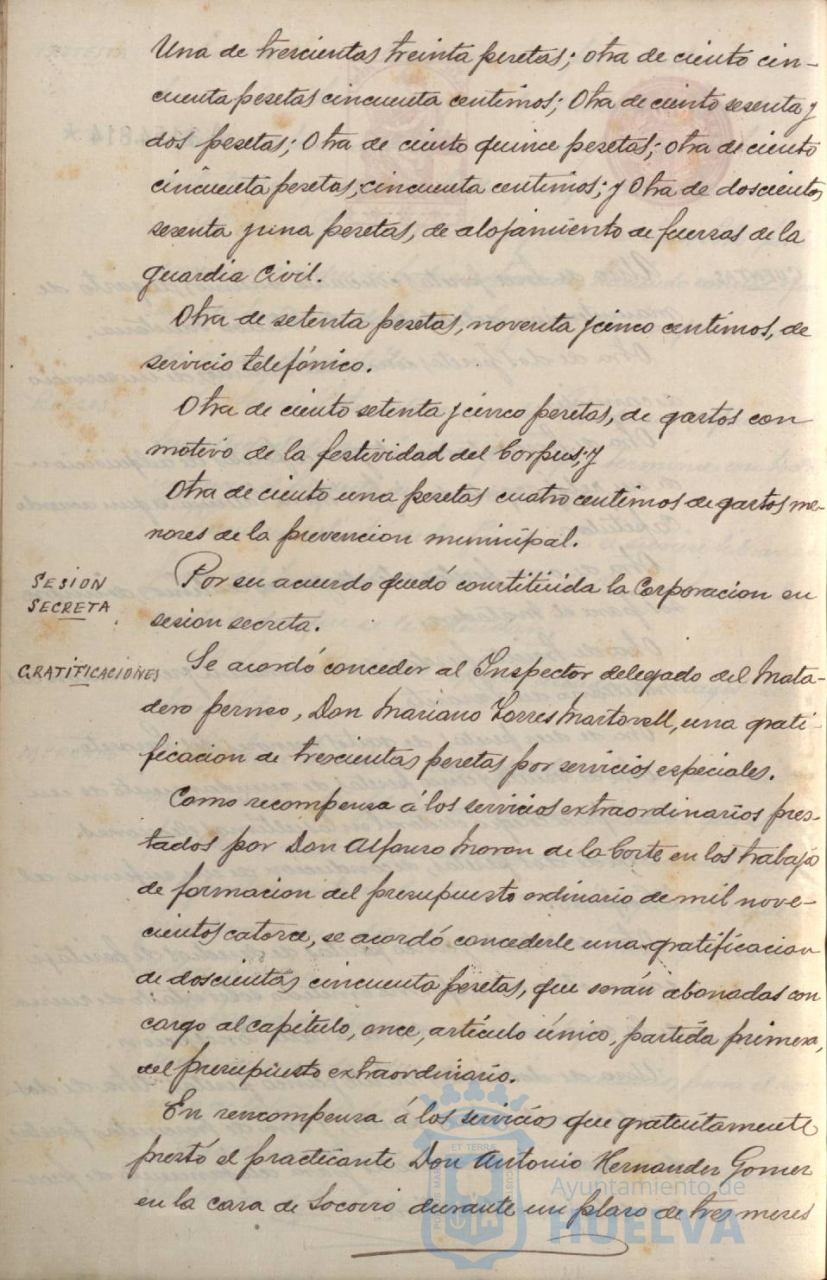 Una de trescientas treinta pesetas; otra de ciento cin-
cuenta pesetas cincuenta centimos; Otra de ciento sesenta y
dos pesetas; Otra de ciento quince pesetas; otra de ciento
cincuenta pesetas, cincuenta centimos; y Otra de doscientos
sesenta y una pesetas, de alojamiento de fuerzas de la
guardia Civil.
Otra de setenta pesetas, noventa y cinco centimos, de
servicio telefónico.
Otra de ciento setenta y cinco pesetas, de gastos con
motivo de la festividad del Corpus; y
Otra de ciento una pesetas cuatro centimos de gastos me-
nores de la prevencion municipal.
SESION
SECRETA
Por su acuerdo quedó constitüida la Corporacion en
sesion secreta.
GRATIFICACIONES
Se acordó conceder al Inspector delegado del Mata-
dero perneo, Don Mariano Torres Martorell, una grati-
ficacion de trescientas pesetas por servicios especiales.
Como recompensa á los servicios extraordinarios pres-
tados por Don Alfonso Moron de la Corte en los trabajo
de formacion del presupuesto ordinario de mil nove-
cientos catorce, se acordó concederle una gratificacion
de doscientas cincuenta pesetas, que serán abonadas con
cargo al capítulo, once, artículo único, partida primera,
del presupuesto extraordinario.
En rencompensa á los servicios que gratuitamente
prestó el practicante Don Antonio Hernandez Gomez
en la casa de Socorro durante un plazo de tres meses
Ayuntamiento de
HUELVA